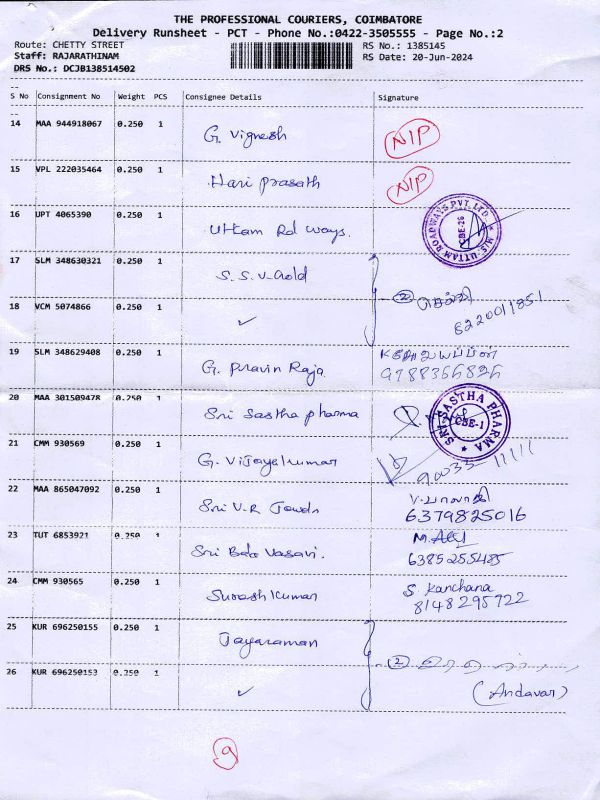 THE PROFESSIONAL COURIERS, COIMBATORE
Delivery Runsheet - PCT - Phone No.:0422-3505555 - Page No.:2
Route: CHETTY STREET RS No.: 1385145
Staff: RAJARATHINAM RS Date: 20-Jun-2024
DRS No.: DCJB138514502
S No Consignment No Weight PCS Consignee Details Signature
14 MAA 944918067 0.250 1 G. Vignesh NIP
15 VPL 222035464 0.250 1 Hari prasath NIP
16 UPT 4065390 0.250 1 Uttam Rd ways.
M/S. UTTAM ROADWAYS PVT. LTD. CBE-26
17 SLM 348630321 0.250 1 S.S.V. Gold
② செல்வி
18 VCM 5074866 0.250 1 ✓
19 SLM 348629408 0.250 1 G. Pravin Raja
9788366826
20 MAA 301509478 0.250 1 Sri Sastha pharma
SRI SASTHA PHARMA CBE-1
21 CMM 930569 0.250 1 G. Vijayakumar
90033-11111
22 MAA 865047092 0.250 1 Sri V.R
V. பாலாஜி
6379825016
23 TUT 6853921 0.250 1 Sri Vasavi.
6385255485
24 CMM 930565 0.250 1 Sureshkumar S. Kanchana
8148295722
25 KUR 696250155 0.250 1 Jayaraman
②
26 KUR 696250153 0.250 1 ✓ (Andavar)
9